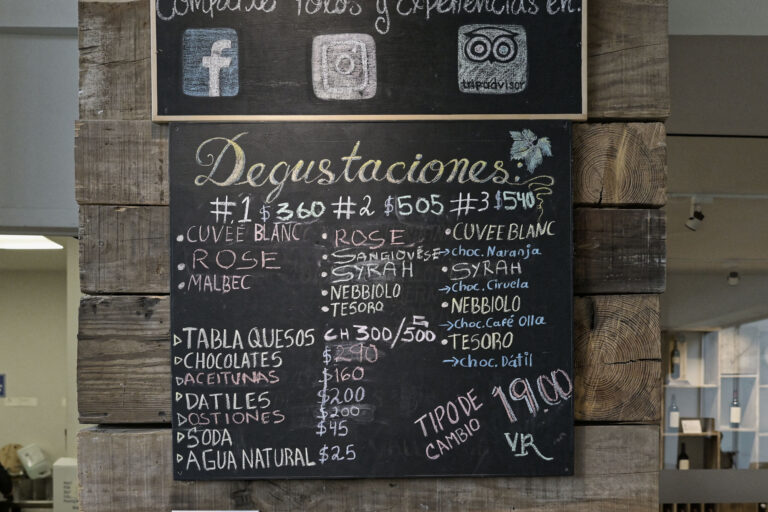 Comparte Fotos y Experiencias en:
f
tripadvisor
Degustaciones:
#1 $360 #2 $505 #3 $540
•CUVÉE BLANC
•ROSE
•MALBEC
•ROSE
•SANGIOVESE
•SYRAH
•NEBBIOLO
•TESORO
•CUVEE BLANC
→choc. Naranja
•SYRAH
→choc. Ciruela
•NEBBIOLO
→choc. Café Olla
•TESORO
→choc. Dátil
▷TABLA QUESOS CH 300/G 500
▷CHOCOLATES $290
▷ACEITUNAS $160
▷DATILES $200
▷OSTIONES $200
▷SODA $45
▷AGUA NATURAL $25
TIPO DE CAMBIO 19.00
VR